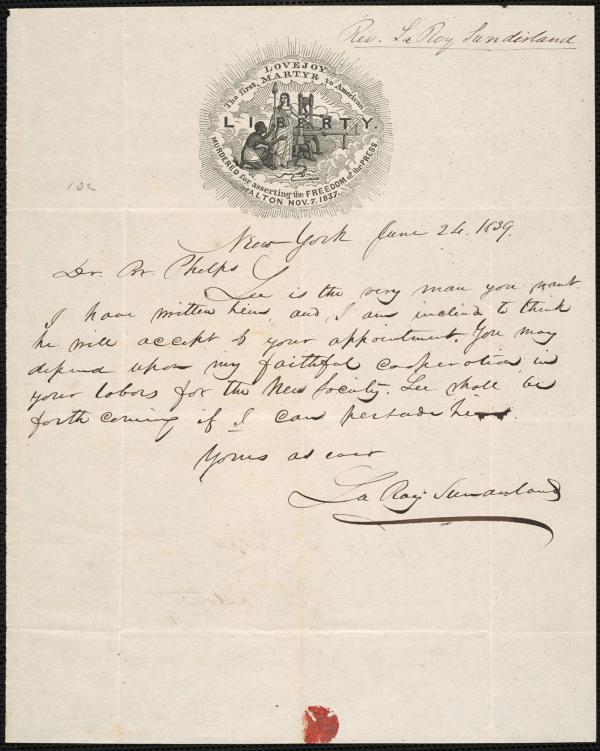 Rev. La Roy Sunderland.
LOVEJOY
The first MARTYR to American
LIBERTY.
MURDERED for asserting the FREEDOM of the PRESS
at ALTON NOV. 7, 1837.
New York June 24. 1839.
Dr. Br. Phelps
Lee is the very man you want.
I have written him, and I am inclind to think
he will accept of your appointment. You may
depend upon my faithful cooperation in
your labors for the New Society. Lee shall be
forth coming if I can persuade him.
Yours as ever
La Roy Sunderland